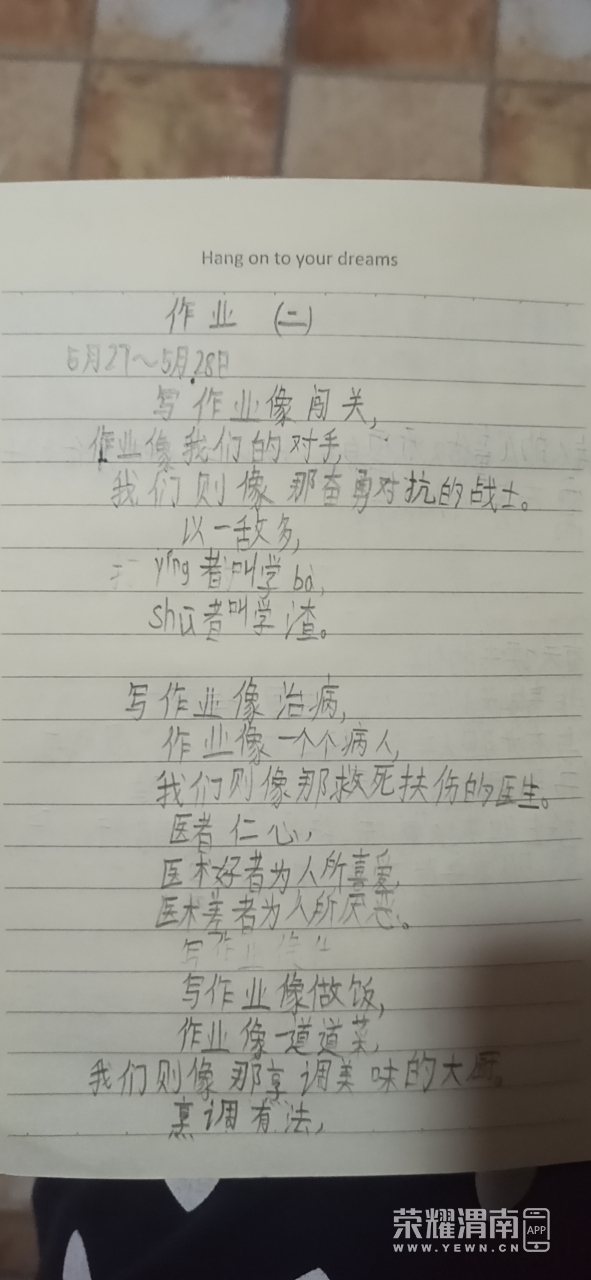 Hang on to your dreams
作业 (二)
5月27～5月28日
写作业像闯关,
作业像我们的对手,
我们则像那奋勇对抗的战士。
以一敌多,
yíng者叫学bà,
shū者叫学渣。
写作业像治病,
作业像一个个病人,
我们则像那救死扶伤的医生。
医者仁心,
医术好者为人所喜爱,
医术差者为人所厌恶。
写作业像
写作业像做饭,
作业像一道道菜,
我们则像那烹调美味的大厨。
烹调有法,
荣耀渭南 APP
WWW.YEWN.CN